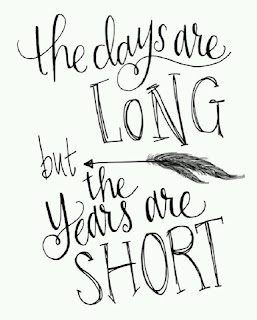 the days are
LONG
but
the
Years are
SHORT